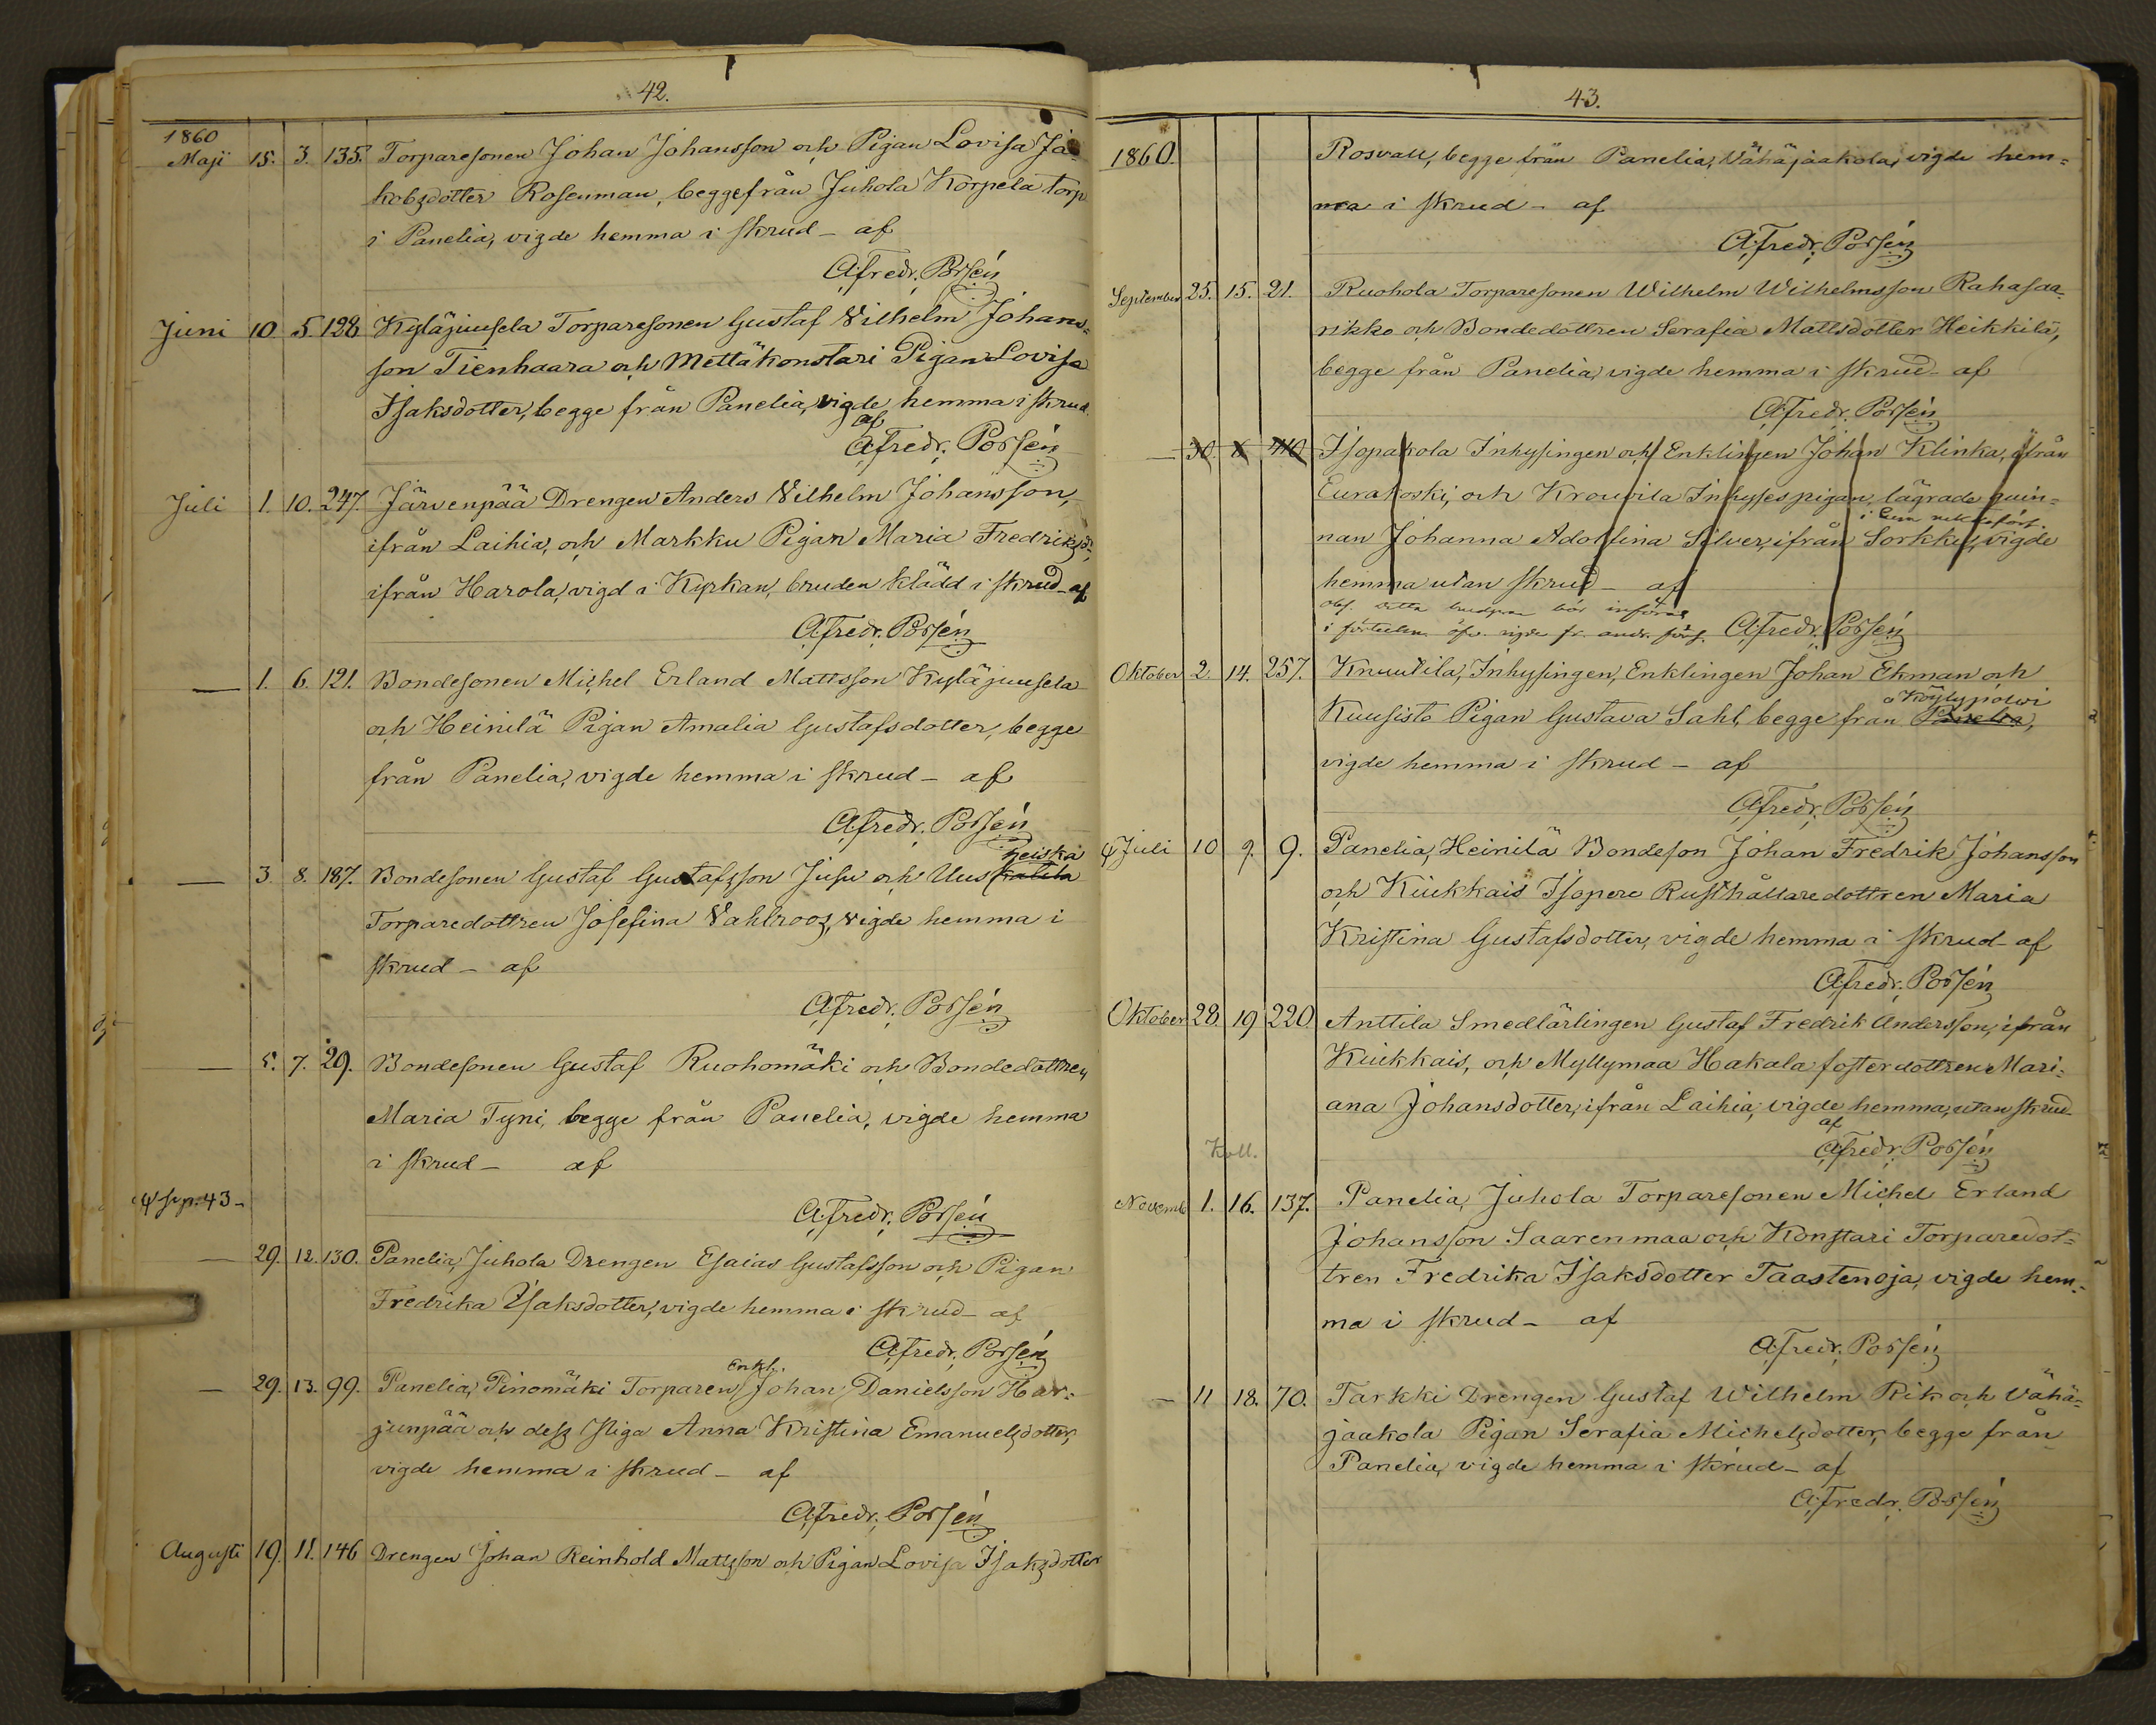 42.
1860
Maji 15. 3. 135. Torparesonen Johan Johansson och Pigan Lovisa Ja-
kobsdotter Rosenman, begge från Juhola Korpela torp
i Panelia, vigde hemma i skrud - af
A. Fredr. Porsén
Juni 10. 5. 128 Kyläjuusela Torparesonen Gustaf Vilhelm Johans-
son Tienhaara och Mettäkonstari Pigan Lovisa
Isaksdotter, begge från Panelia, vigde hemma i skrud
af
A. Fredr. Porsén
Juli 1. 10. 247. Järvenpää Drengen Anders Vilhelm Johansson,
ifrån Laihia, och Markku Pigan Maria Fredriksd:,
ifrån Harola, vigd i Kyrkan, bruden klädd i skrud - af
A. Fredr. Porsén
— 1. 6. 121. Bondesonen Michel Erland Mattsson Kyläjuusela
och Heinilä Pigan Amalia Gustafsdotter, begge
från Panelia, vigde hemma i skrud - af
A. Fredr. Porsén
heiska
— 3. 8. 187. Bondesonen Gustaf Gustafsson Jusu och Uus
Torparedottren Josefina Vahlroos, vigde hemma i
skrud - af
A. Fredr. Porsén
— 5. 7. 29. Bondesonen Gustaf Ruohomäki och Bondedottren
Maria Tyni, begge från Panelia, vigde hemma
i skrud - af
ψ se p. 43 -
A. Fredr. Porsén
— 29. 12. 130. Panelia, Juhola Drengen Esaias Gustafsson och Pigan
Fredrika Isaksdotter, vigde hemma i skrud - af
A. Fredr. Porsén
Enkl.
— 29. 13. 99. Panelia, Pinomäki Torparen Johan Danielsson Har-
junpää och dess Piga Anna Kristina Emanuelsdotter,
vigde hemma i skrud - af
A. Fredr. Porsén
Augusti 19. 11. 146 Drengen Johan Reinhold Mattsson och Pigan Lovisa Isaksdotter
43.
1860. Rosvall, begge från Panelia, Vähäjaakola, vigde hem-
ma i skrud - af
A. Fredr. Porsén
September 25. 15. 21. Ruohola Torparesonen Wilhelm Wilhelmsson Rahasaa-
rikko och Bondedottren Serafia Mattsdotter Heikkilä,
begge från Panelia, vigde hemma i skrud - af
A. Fredr. Porsén
— 30. Isopakola Inhysingen och Enklingen Johan Klinka, ifrån
Eurakoski, och Krouvila Inhysespigan, lägrade quin-
nan Johanna Adolfina Silver, ifrån Sorkkis, vigde
hemma utan skrud - af
Obs. detta brudpar bör införas
i förteckn. öfv. vigde fr. andr. förs. A. Fredr. Porsén
Oktober 2. 14. 257. Knuutila, Inhysingen, Enklingen Johan Ekman och
Köylypolvi
Kuusisto Pigan Gustava Sahl, begge från Panelia,
vigde hemma i skrud - af
A. Fredr. Porsén
ψ Juli 10 9. 9. Panelia, Heinilä Bondeson Johan Fredrik Johansson
och Kiukkais Isopere Rusthållaredottren Maria
Kristina Gustafsdotter, vigde hemma i skrud - af
A. Fredr. Porsén
Oktober 28. 19 220. Anttila Smedlärlingen Gustaf Fredrik Andersson, ifrån
Kiukkais, och Myllymaa Hakala fosterdottren Mari-
ana Johansdotter, ifrån Laihia, vigde hemma, utan skrud
af
Koll. A. Fredr. Porsén
Novemb 1. 16. 137. Panelia, Juhola Torparesonen Michel Erland
Johansson Saarenmaa och Konstari Torparedot-
tren Fredrika Isaksdotter Taastenoja, vigde hem-
ma i skrud - af
A. Fredr. Porsén
— 11 18. 70. Tarkki Drengen Gustaf Wilhelm Rik och Vähä-
jaakola Pigan Serafia Michelsdotter, begge från
Panelia, vigde hemma i skrud - af
A. Fredr. Porsén